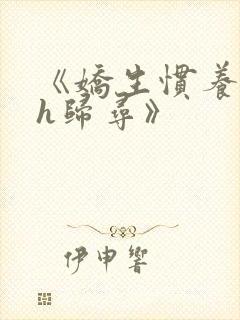 《嬌生慣養
h歸尋》
伊申響